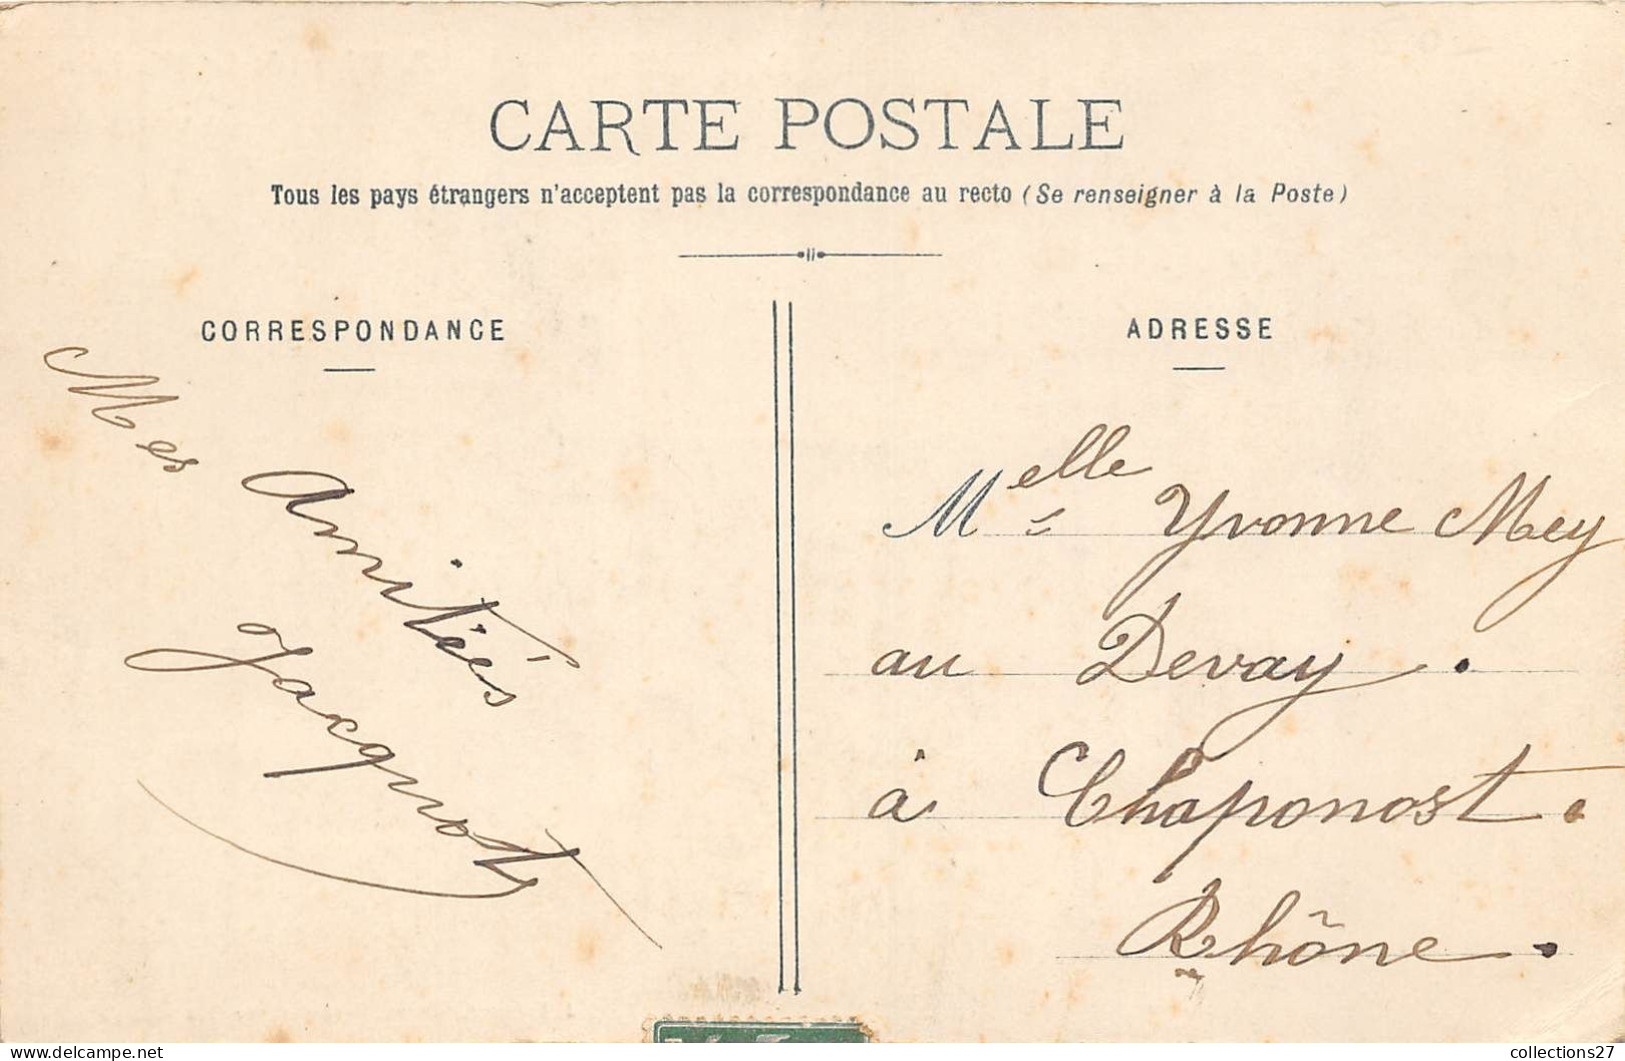 CARTE POSTALE
Tous les pays étrangers n'acceptent pas la correspondance au recto (Se renseigner à la Poste)
CORRESPONDANCE
Mes
Amitiés
Jacquot
ADRESSE
Melle Yvonne Mey
au Devay.
à Chaponost.
Rhône.
collections27